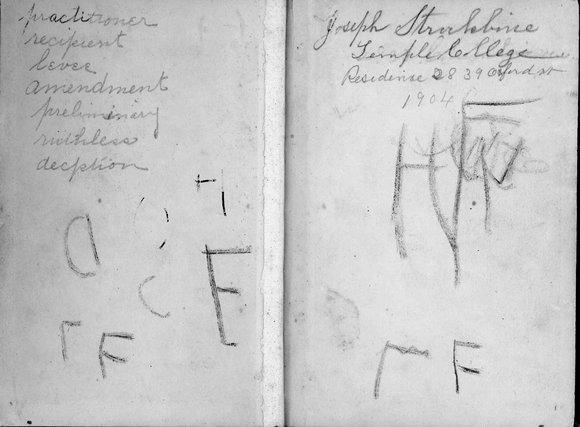 practitioner
recipient
levee
amendment
preliminary
ruthless
deception
H
F
F
Joseph Strockbine
Temple College
Residense 2839 Oxford st
1904
H
F
F